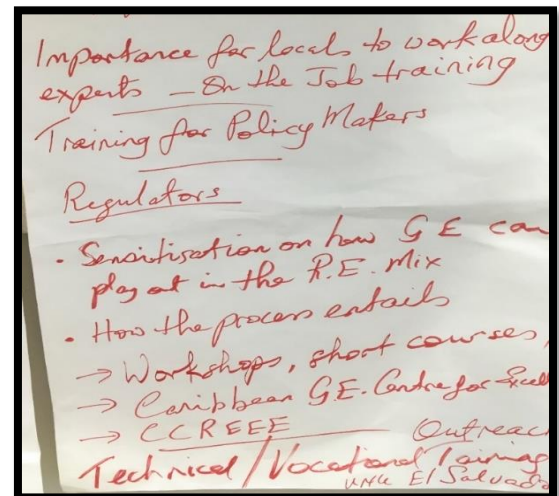 Importance for locals to work along
experts – On the Job training
Training for Policy Makers
Regulators
• Sensitisation on how GE can
play out in the R.E. Mix
• How the process entails
→ Workshops, short courses,
→ Caribbean G.E. Centre for Excell
→ CCREEE
Outreach
Technical/Vocational Training
UNU El Salvado